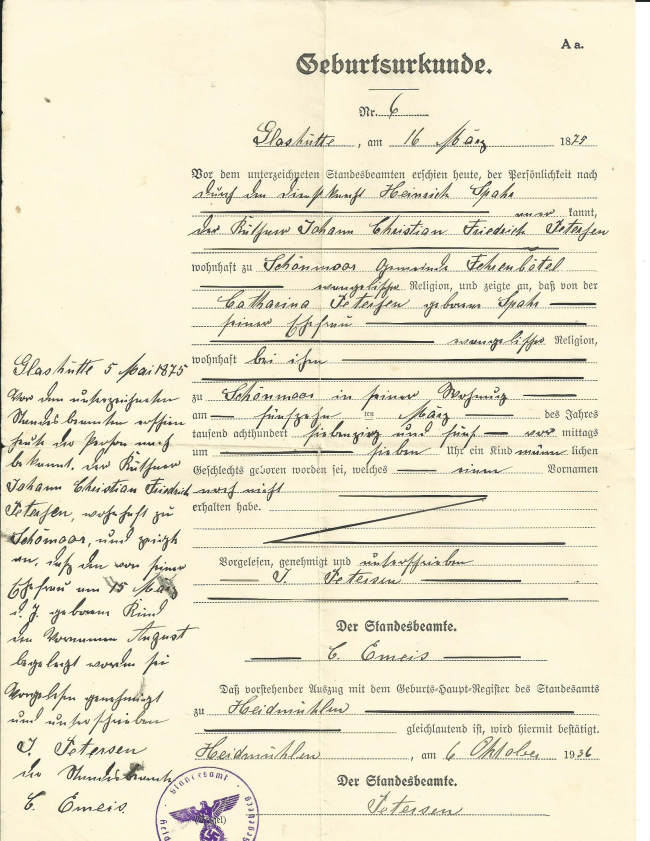 A a.
Geburtsurkunde.
Nr. 6
Glashütte, am 16 März 1875
Vor dem unterzeichneten Standesbeamten erschien heute, der Persönlichkeit nach
durch den Dienstknecht Heinrich Spahr
aner kannt,
der Käthner Johann Christian Friedrich Petersen
wohnhaft zu Schönmoor Gemeinde Fehrenbötel
evangelischer Religion, und zeigte an, daß von der
Catharina Petersen geborene Spahr
seiner Ehefrau
evangelischer Religion,
wohnhaft bei ihm
zu Schönmoor in seiner Wohnung
am fünfzehn ten März des Jahres
tausend achthundert siebenzig und fünf vor mittags
um sieben Uhr ein Kind männ lichen
Geschlechts geboren worden sei, welches einen Vornamen
noch nicht
erhalten habe.
Vorgelesen, genehmigt und unterschrieben
J. Petersen
Der Standesbeamte.
C. Emeis
Daß vorstehender Auszug mit dem Geburts-Haupt-Register des Standesamts
zu Heidmühlen
gleichlautend ist, wird hiermit bestätigt.
Heidmühlen, am 6 Oktober 1936
Der Standesbeamte.
Petersen
Glashütte 5 Mai 1875
Vor dem unterzeichneten
Standesbeamten erschien
heute der Person nach
bekannt, der Käthner
Johann Christian Friedrich
Petersen, wohnhaft zu
Schönmoor, und zeigte
an, daß den von seiner
Ehefrau am 15 März
d. J. geborene Kind
den Vornamen August
beigelegt worden sei
Vorgelesen genehmigt
und unterschrieben
J. Petersen
der Standesbeamte
C. Emeis
Standesamt